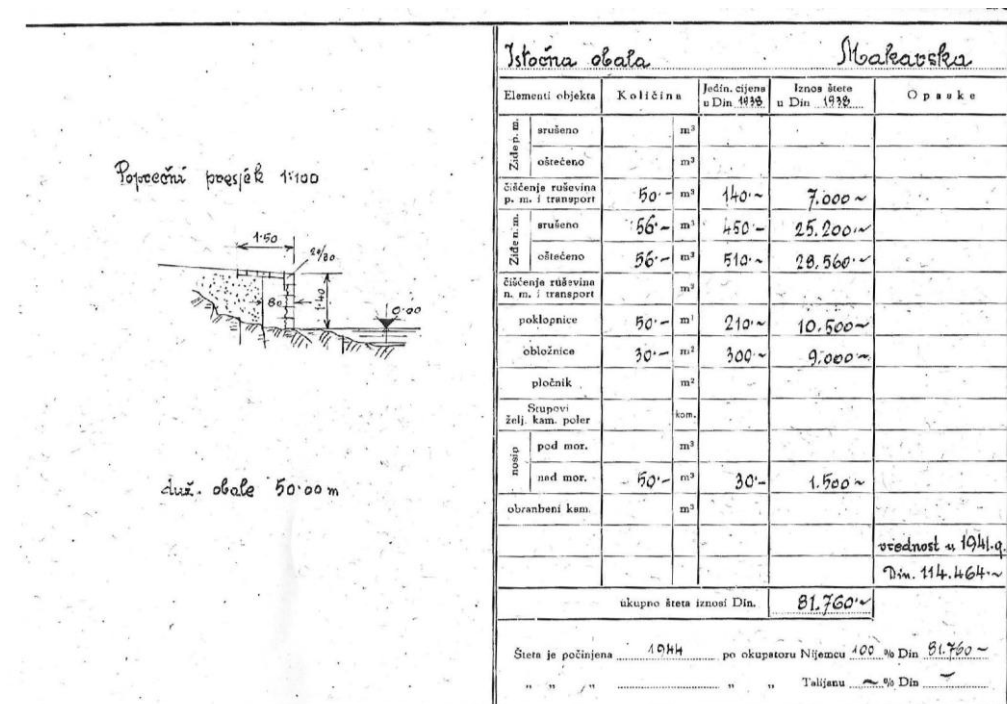 Poprečni presjek 1:100
1·50
20/80
80
1·40
0·00
duž. obale 50·00 m
Istočna obala Makarska
Elementi objekta Količina Jedin. cijena u Din 1938 Iznos štete u Din 1938 Opaske
Ziđe p. m. srušeno m³
oštećeno m³
čišćenje ruševina p. m. i transport 50·– m³ 140·~ 7.000~
Ziđe n. m. srušeno 56·– m³ 450·– 25.200·~
oštećeno 56·– m³ 510·~ 28.560·~
čišćenje ruševina n. m. i transport m³
poklopnice 50·– m¹ 210·~ 10.500~
obložnice 30·– m² 300·~ 9.000~
pločnik m²
Stupovi želj. kam. poler kom.
nosip pod mor. m³
nad mor. 50·– m³ 30·– 1.500~
obranbeni kam. m³
vrednost u 1941.g.
Din. 114.464·~
ukupno šteta iznosi Din. 81.760·~
Šteta je počinjena 1944 po okupatoru Nijemcu 100 % Din 81.760~
" " " " " Talijanu ~ % Din ~